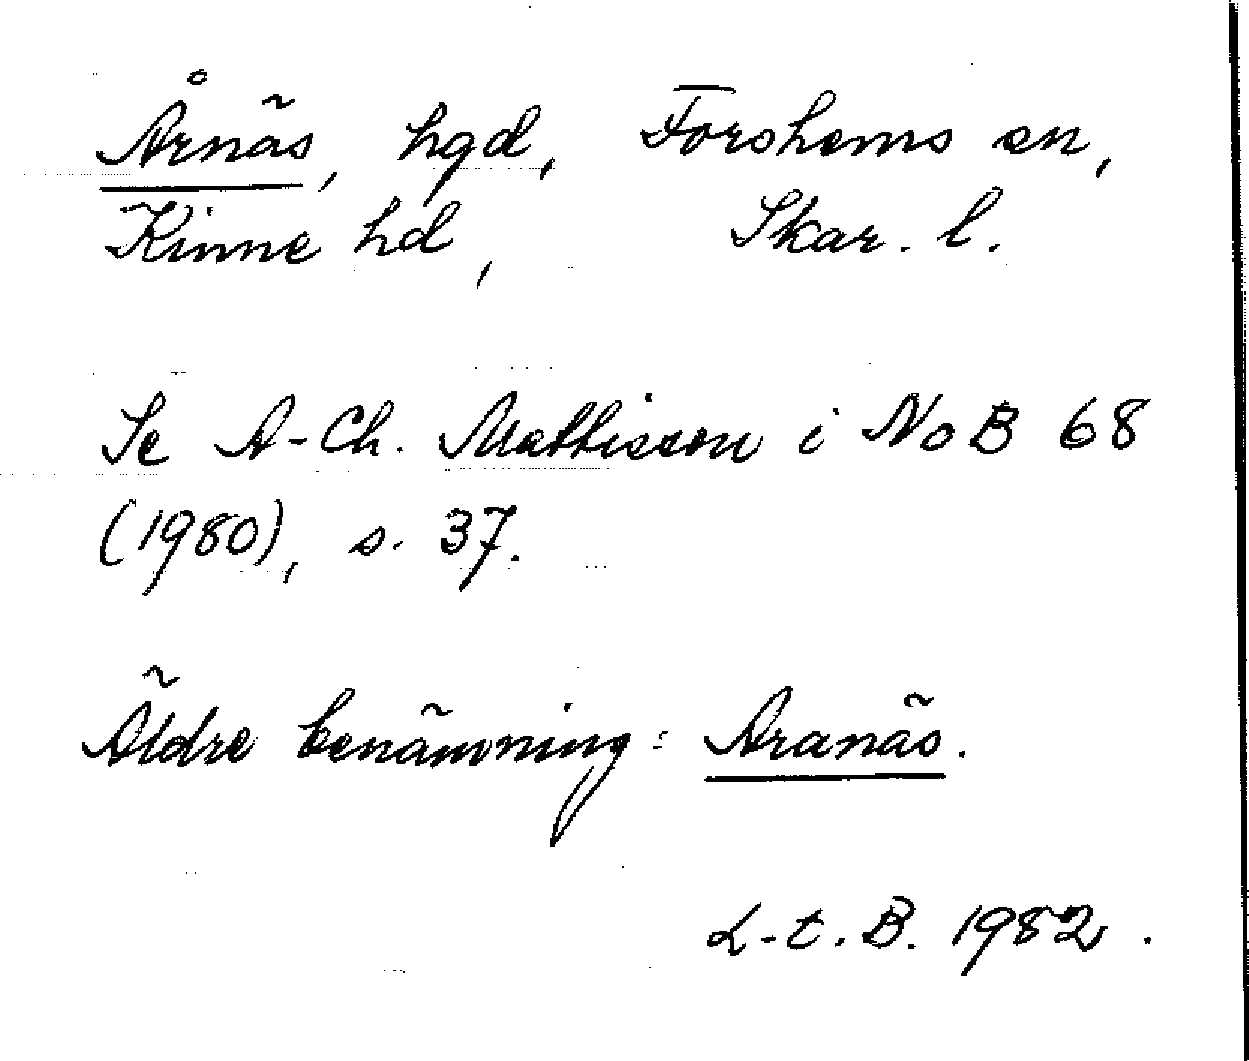 Årnäs, hgd, Forshems sn,
Kinne hd, Skar. l.
Se A-Ch. Mattisson i NoB 68
(1980), s. 37.
Äldre benämning: Aranäs.
L-t. B. 1982.